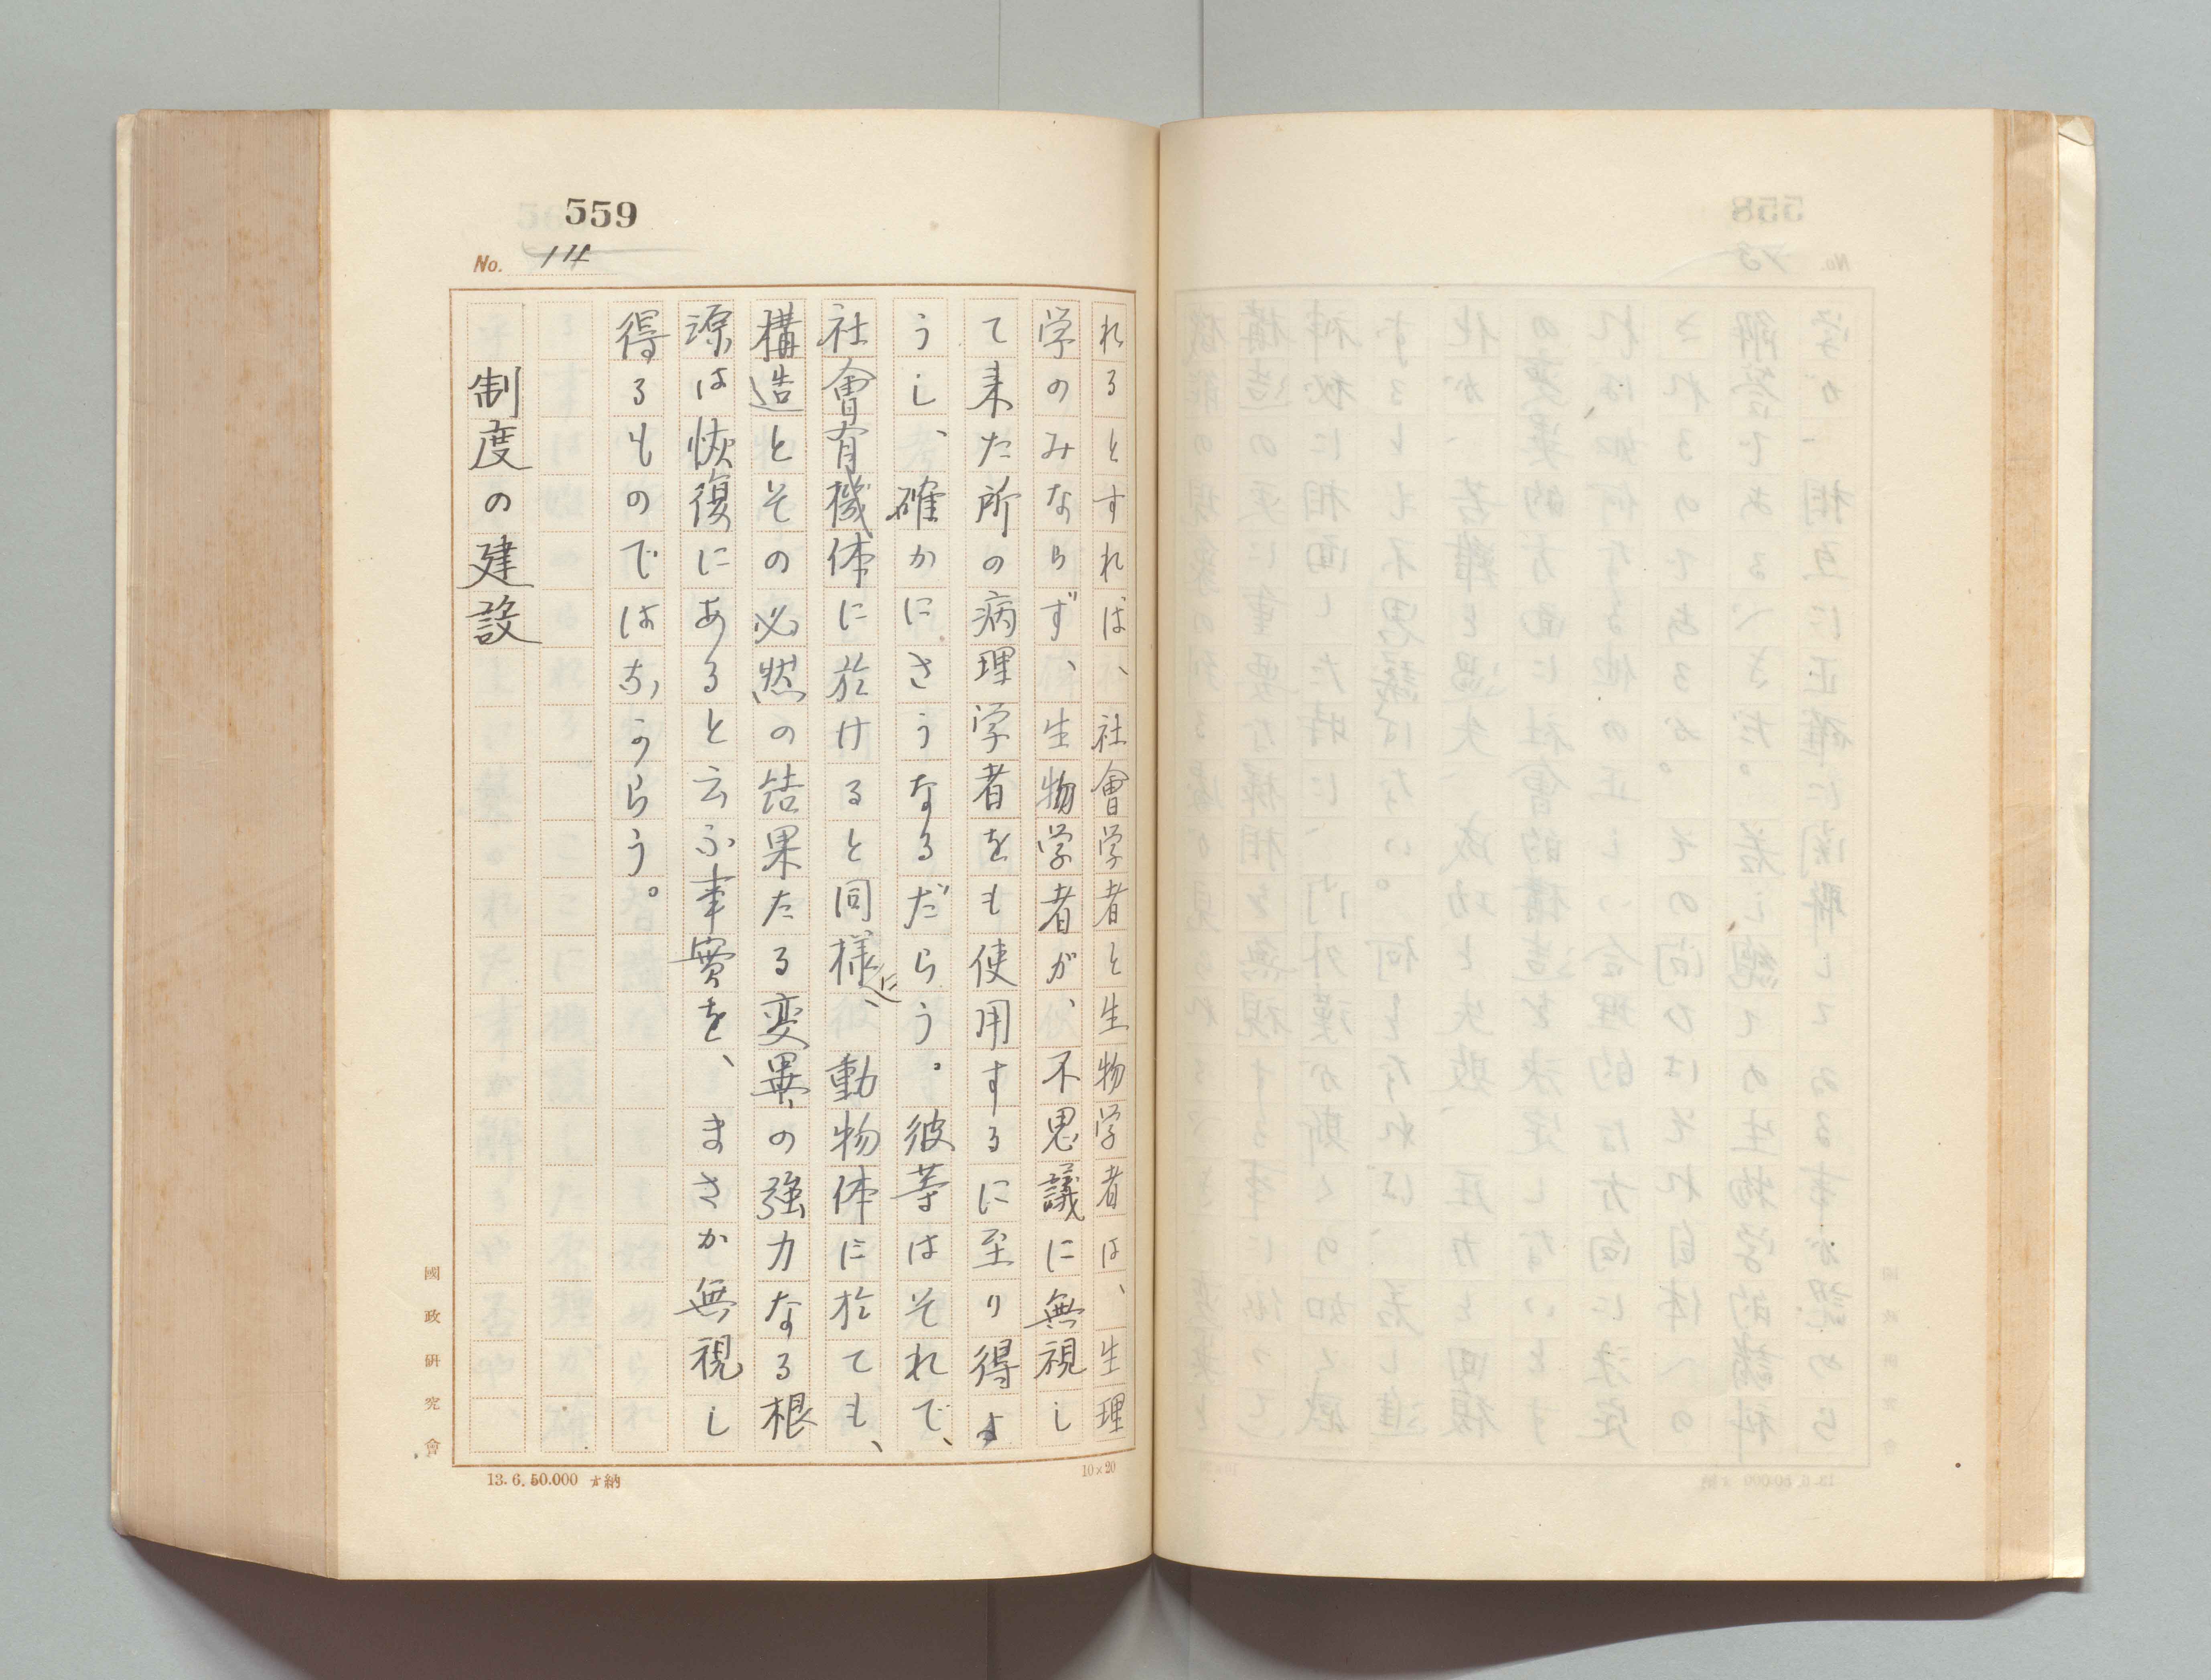 559
No. 14
れるとすれば、社會学者と生物学者は、生理
学のみならず、生物学者が、不思議に無視し
て来た所の病理学者をも使用するに至り得よ
うし、確かにさうなるだらう。彼等はそれで、
社會有機体に於けると同様に、動物体に於ても、
構造とその必然の結果たる変異の強力なる根
源は恢復にあると云ふ事實を、まさか無視し
得るものではなからう。
制度の建設
國政研究會
13.6.50.000 納
10×20